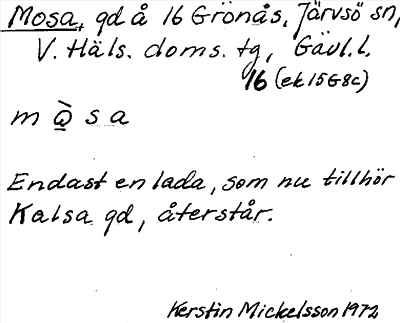 Mosa, gd å 16 Grönås, Järvsö sn,
V. Häls. doms. tg, Gävl. l.
16 (ek 15G8c)
m ò̱ s a
Endast en lada, som nu tillhör
Kalsa gd, återstår.
Kerstin Mickelsson 1972